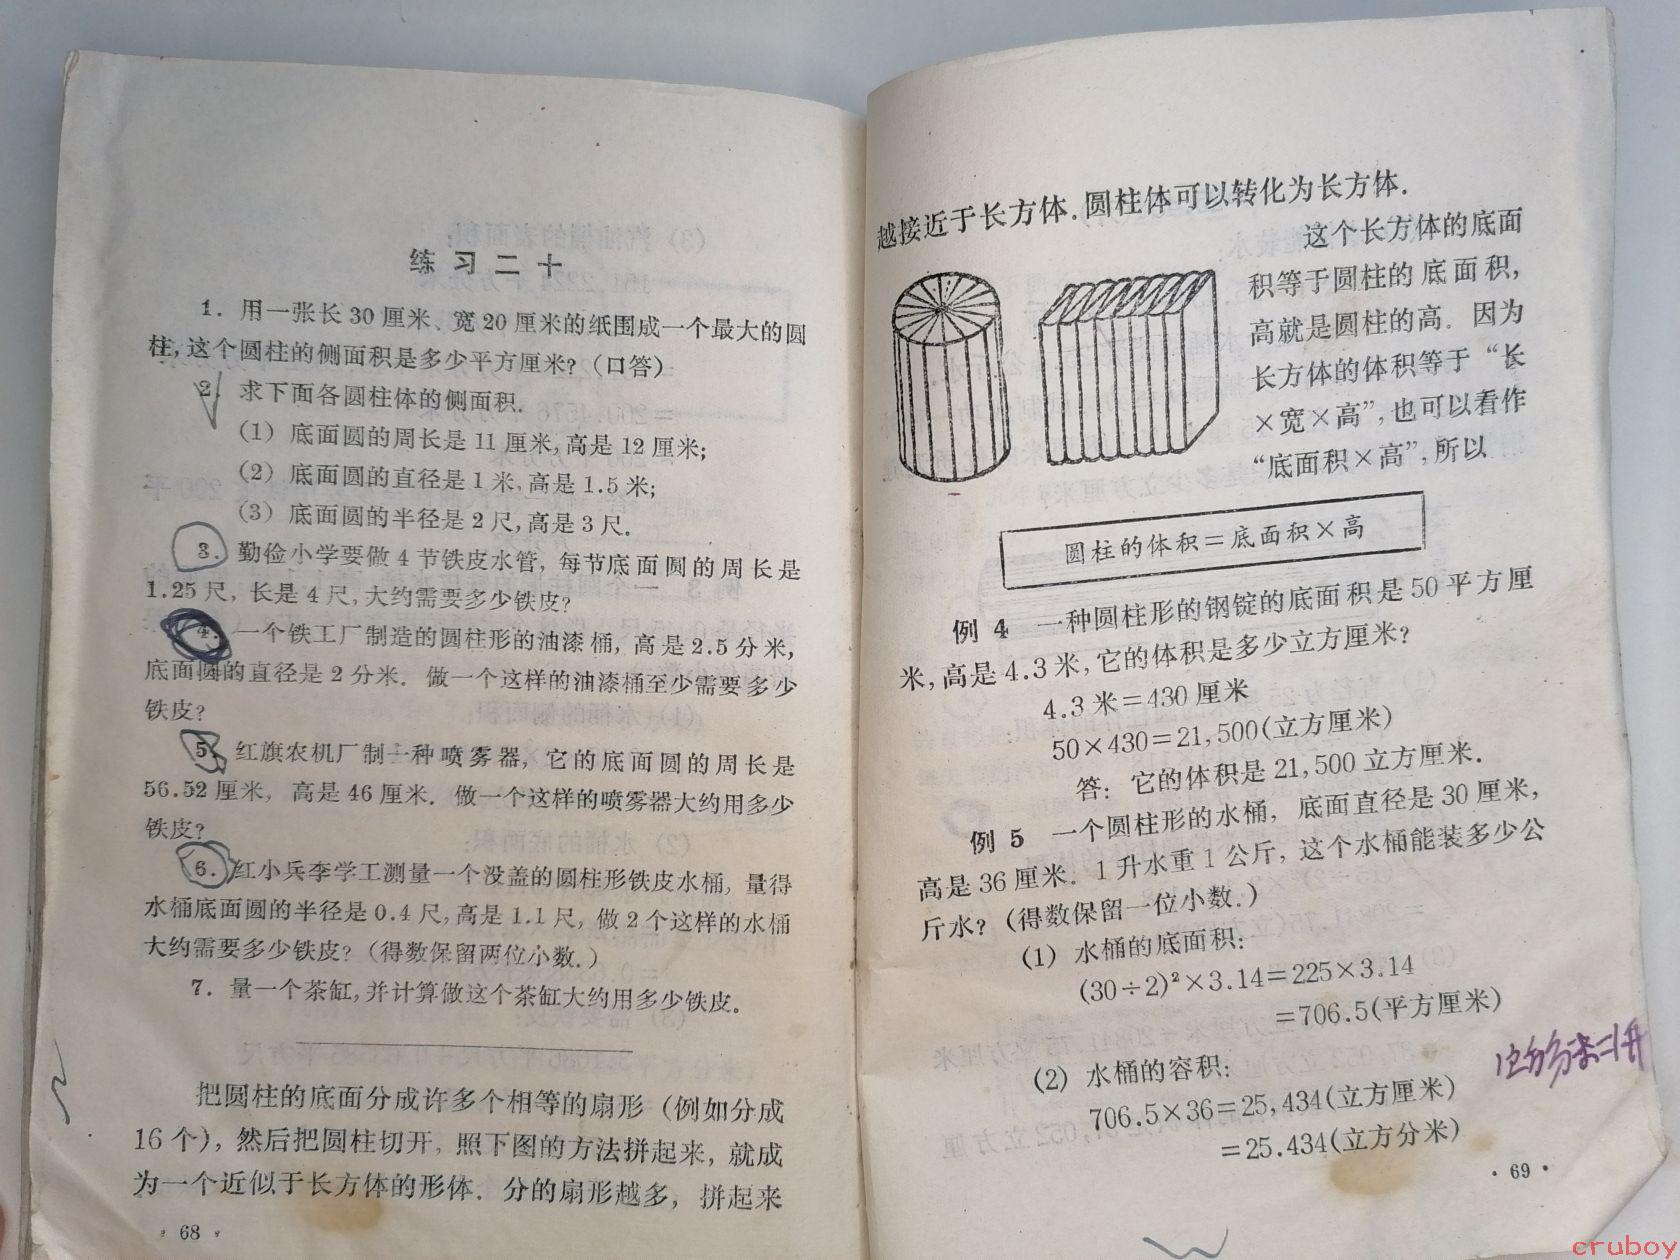 练习二十
1. 用一张长 30 厘米、宽 20 厘米的纸围成一个最大的圆
柱,这个圆柱的侧面积是多少平方厘米?(口答)
2. 求下面各圆柱体的侧面积.
(1) 底面圆的周长是 11 厘米,高是 12 厘米;
(2) 底面圆的直径是 1 米,高是 1.5 米;
(3) 底面圆的半径是 2 尺,高是 3 尺.
3. 勤俭小学要做 4 节铁皮水管, 每节底面圆的周长是
1.25 尺, 长是 4 尺,大约需要多少铁皮?
4. 一个铁工厂制造的圆柱形的油漆桶, 高是 2.5 分米,
底面圆的直径是 2 分米. 做一个这样的油漆桶至少需要多少
铁皮?
5. 红旗农机厂制一种喷雾器, 它的底面圆的周长是
56.52 厘米, 高是 46 厘米. 做一个这样的喷雾器大约用多少
铁皮?
6. 红小兵李学工测量一个没盖的圆柱形铁皮水桶, 量得
水桶底面圆的半径是 0.4 尺,高是 1.1 尺, 做 2 个这样的水桶
大约需要多少铁皮? (得数保留两位小数.)
7. 量一个茶缸,并计算做这个茶缸大约用多少铁皮.
把圆柱的底面分成许多个相等的扇形 (例如分成
16 个), 然后把圆柱切开, 照下图的方法拼起来, 就成
为一个近似于长方体的形体. 分的扇形越多, 拼起来
· 68 ·
越接近于长方体. 圆柱体可以转化为长方体.
这个长方体的底面
积等于圆柱的底面积,
高就是圆柱的高. 因为
长方体的体积等于 “长
×宽×高”,也可以看作
“底面积×高”,所以
圆柱的体积=底面积×高
例 4 一种圆柱形的钢锭的底面积是 50 平方厘
米,高是 4.3 米,它的体积是多少立方厘米?
4.3 米=430 厘米
50×430=21,500(立方厘米)
答: 它的体积是 21,500 立方厘米.
例 5 一个圆柱形的水桶, 底面直径是 30 厘米,
高是 36 厘米. 1 升水重 1 公斤, 这个水桶能装多少公
斤水? (得数保留一位小数.)
(1) 水桶的底面积:
(30÷2)²×3.14=225×3.14
=706.5(平方厘米)
(2) 水桶的容积:
706.5×36=25,434(立方厘米)
=25.434(立方分米)
1立方分米=1升
· 69 ·
cruboy